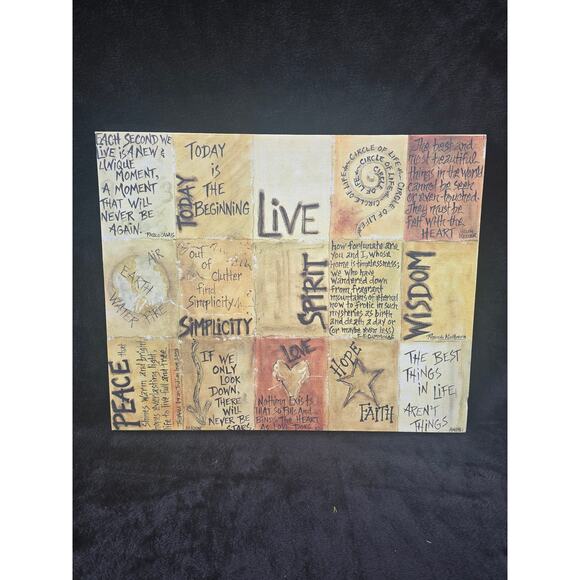 EACH SECOND WE
LIVE IS A NEW &
UNIQUE
MOMENT,
A MOMENT
THAT WILL
NEVER BE
AGAIN.
PABLO CASALS
TODAY
TODAY
IS THE
BEGINNING
LIVE
CIRCLE OF LIFE
CIRCLE OF LIFE
CIRCLE OF LIFE
CIRCLE OF LIFE
The best and
most beautiful
things in the world
cannot be seen
or even touched.
They must be
felt with the
HEART
HELEN
KELLER
AIR
EARTH
WATER FIRE
out
of
Clutter
find
Simplicity.
SIMPLICITY
SPIRIT
how fortunate are
you and I, whose
home is timelessness;
we who have
wandered down
from fragrant
mountains of eternal
now to frolic in such
mysteries as birth
and death a day or
(or maybe even less)
E.E. CUMMINGS
WISDOM
PEACE that
Shines warm and bright
gives everlasting light,
life to live full and free
IF WE
ONLY
LOOK
DOWN,
THERE
WILL
NEVER BE
STARS
LOVE
Nothing Exists
THAT SO FILLS AND
BINDS THE HEART
AS LOVE DOES.
HOPE
FAITH
THE BEST
THINGS
IN LIFE
AREN'T
THINGS